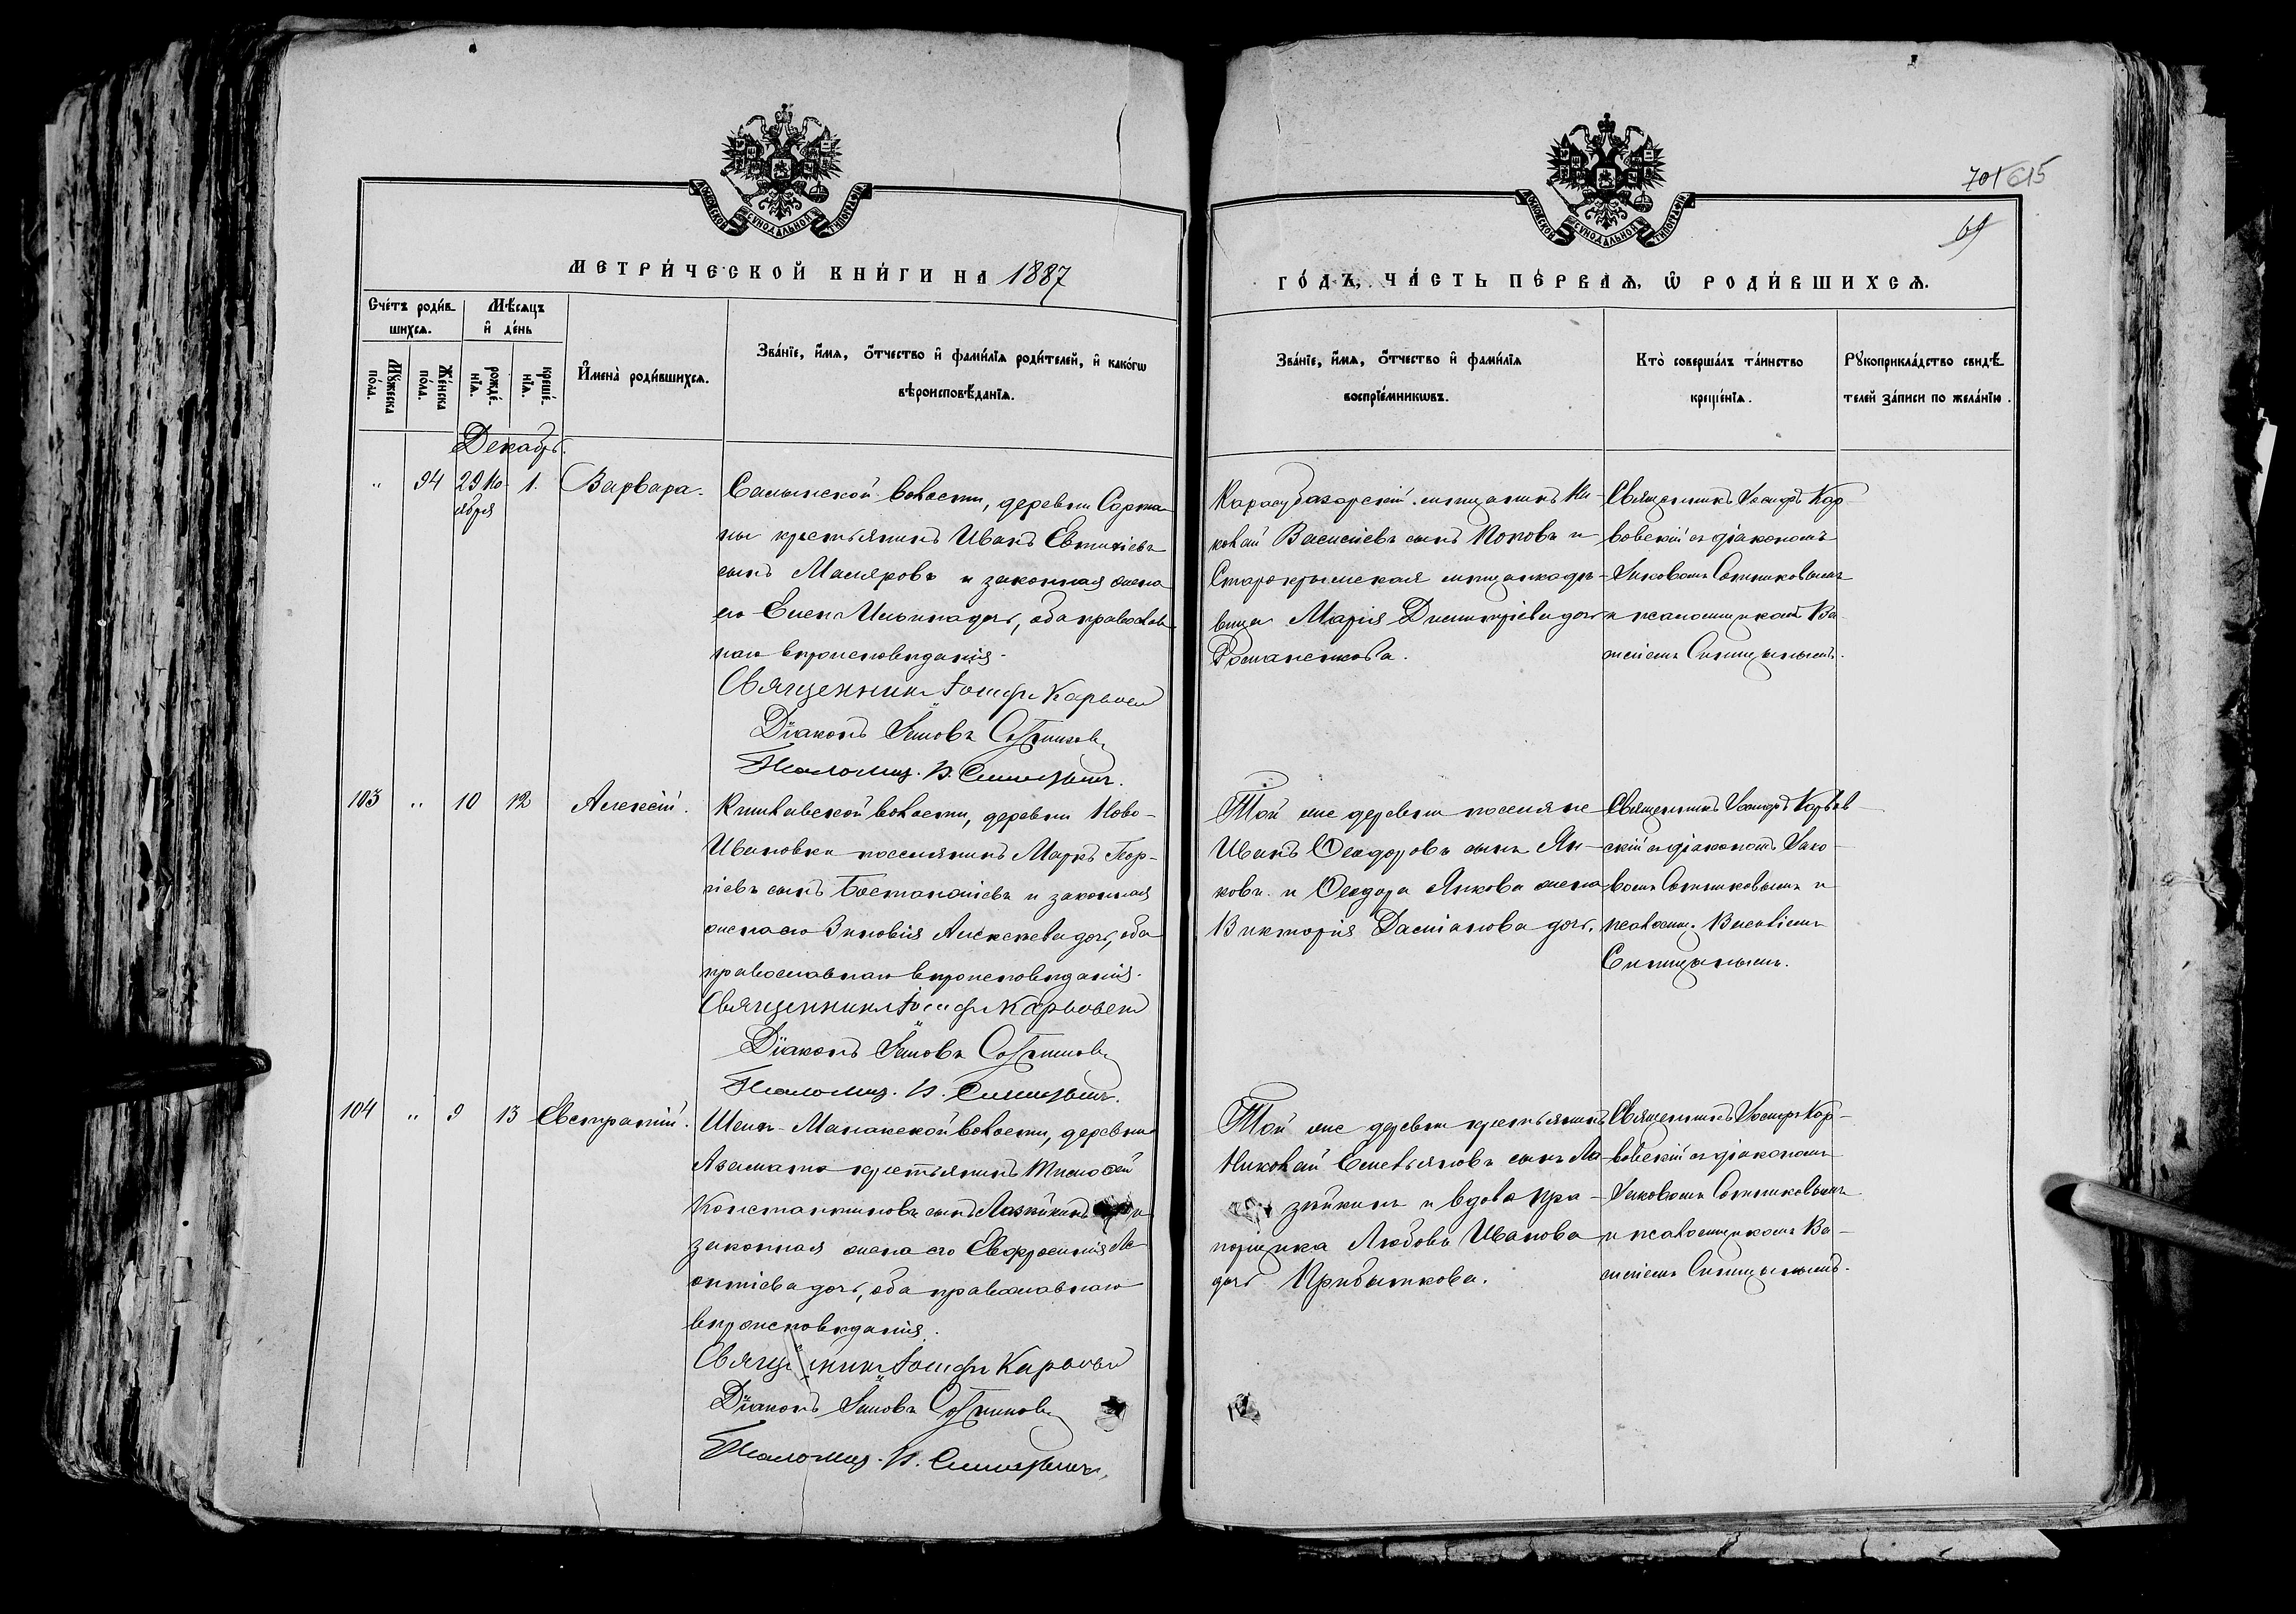 701 615
69
МОСКОВСКОЙ СѴНОДАЛЬНОЙ ТИПОГРАФІИ
МОСКОВСКОЙ СѴНОДАЛЬНОЙ ТИПОГРАФІИ
МЕТРИ́ЧЕСКОЙ КНИ́ГИ НА 1887
ГО́ДЪ, ЧА́СТЬ ПЕ́РВАѦ, Ѡ РОДИ́ВШИХСѦ.
Сче́тъ роди́в-
шихсѧ.
Мѣ́сѧцъ
и҆ де́нь
Мꙋ́жеска по́ла.
Же́нска по́ла.
рожде́-нїѧ.
креще́-нїѧ.
И҆мена̀ роди́вшихсѧ.
Зва́нїе, и҆́мѧ, ѻ҆́тчество и҆ фами́лїѧ роди́телей, и҆ како́гѡ
вѣроисповѣ́данїѧ.
Зва́нїе, и҆́мѧ, ѻ҆́тчество и҆ фами́лїѧ
воспрїе́мникѡвъ.
Кто̀ соверша́лъ та́инство
креще́нїѧ.
Рꙋкоприкла́дство свидѣ́-
телей за́писи по жела́нїю.
Декабрь.
" 94 29 Но-
ября 1. Варвара.
Салынской волости, деревни Сарта-
ны крестьянинъ Иванъ Евтихіевъ
сынъ Маляровъ и законная жена
его Елена Ильина дочь, оба православ-
наго вѣроисповѣданія.
Священникъ Іосифъ Карвовскій
Діаконъ Іаковъ Сотниковъ
Псаломщ. В. Синицынъ.
Карасубазарскій мѣщанинъ Ни-
колай Васильевъ сынъ Поповъ и
Старокрымская мѣщанка дѣ-
вица Марія Димитріева дочь
Романенкова.
Священникъ Іосифъ Кар-
вовскій съ діакономъ
Іаковомъ Сотниковымъ
и псаломщикомъ Ва-
силіемъ Синицынымъ.
103 " 10 12 Алексій.
Кишлавской волости, деревни Ново-
Ивановки поселянинъ Маркъ Геор-
гіевъ сынъ Бостанжіевъ и законная
жена его Зиновія Алексѣева дочь, оба
православнаго вѣроисповѣданія.
Священникъ Іосифъ Карвовскій
Діаконъ Іаковъ Сотниковъ
Псаломщ. В. Синицынъ.
Той же деревни поселяне
Иванъ Ѳеодоровъ сынъ Ян-
ковъ и Ѳеодора Янкова жена
Викторія Даміанова дочь.
Священникъ Іосифъ Карвов-
скій съ діакономъ Іако-
вомъ Сотниковымъ и
псаломщ. Василіемъ
Синицынымъ.
104 " 9 13 Евстратій.
Шейх-Монакской волости, деревни
Азаматъ крестьянинъ Тимоѳей
Константиновъ сынъ Лазѣйкинъ и
законная жена его Евфросинія Ле-
онтіева дочь, оба православнаго
вѣроисповѣданія.
Священникъ Іосифъ Карвовскій
Діаконъ Іаковъ Сотниковъ
Псаломщ. В. Синицынъ.
Той же деревни крестьянинъ
Николай Емельяновъ сынъ Ла-
зѣйкинъ и вдова пра-
порщика Любовь Иванова
дочь Прибыткова.
Священникъ Іосифъ Кар-
вовскій съ діакономъ
Іаковомъ Сотниковымъ
и псаломщикомъ Ва-
силіемъ Синицынымъ.